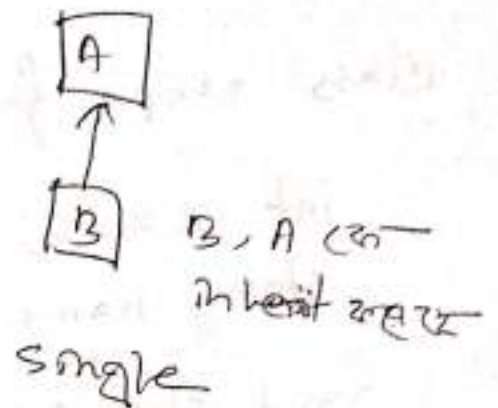 A
B
B, A কে
inherit করছে
single